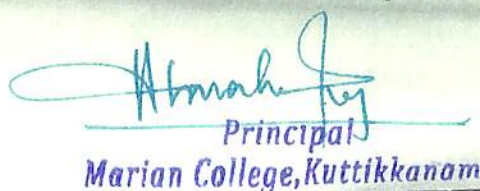 Principal
Marian College, Kuttikkanam